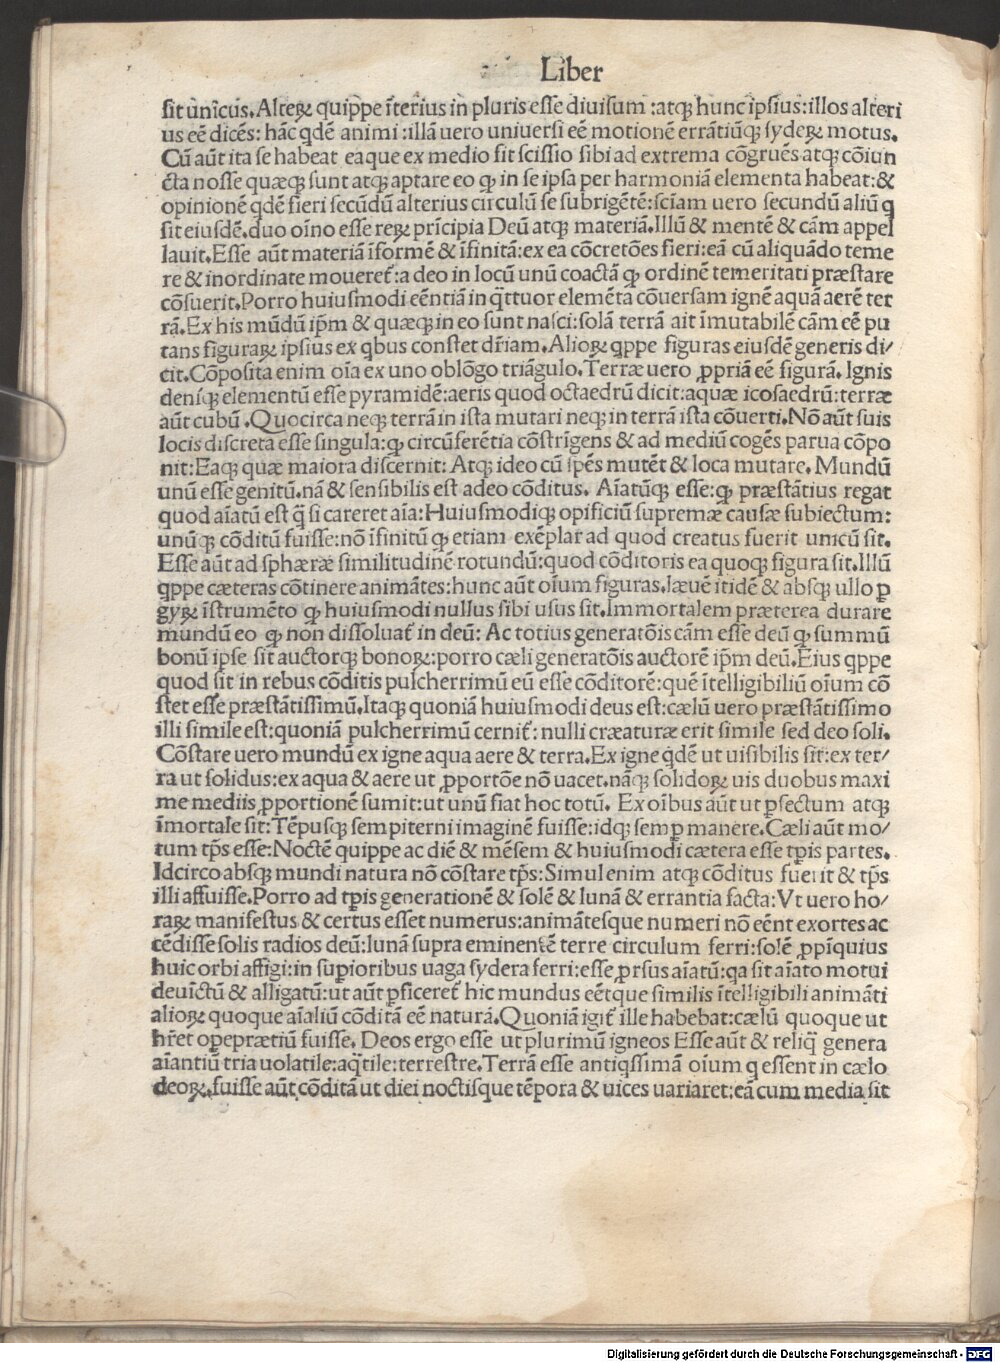 Liber
sit unicus. Alteꝝ quippe īterius in pluris esse diuisum :atqꝫ hunc ipsius:illos alteri
us eē dicēs: hāc qdē animi :illā uero uniuersi eē motionē errātiūqꝫ sydeꝝ motus.
Cū aūt ita se habeat eaque ex medio sit scissio sibi ad extrema cōgruēs atqꝫ cōiun
cta nosse quæqꝫ sunt atqꝫ aptare eo ꝙ in se ipsa per harmoniā elementa habeat:&
opinionē qdē fieri secūdū alterius circulū se subrigētē:sciam uero secundū aliū q
sit eiusdē.duo oīno esse reꝝ prīcipia Deū atqꝫ materiā.Illū & mentē & cām appel
lauit.Esse aūt materiā īformē & īfinitā:ex ea cōcretōes fieri:eā cū aliquādo teme
re & inordinate moueret᷑:a deo in locū unū coactā ꝙ ordinē temeritati præstare
cōsuerit.Porro huiusmodi eēntiā in qͣttuor elemēta cōuersam ignē aquā aerē ter
rā.Ex his mūdū ip̄m & quæqꝫ in eo sunt nasci:solā terrā ait īmutabilē cām eē pu
tans figuraꝝ ipsius ex qbus constet dr̄iam.Alioꝝ qppe figuras eiusdē generis di⸗
cit.Cōposita enim oīa ex uno oblōgo triāgulo.Terræ uero ꝓpriā eē figurā.Ignis
densqꝫ elementū esse pyramidē:aeris quod octaedrū dicit:aquæ icosaedrū:terræ
aūt cubū .Quocirca neqꝫ terrā in ista mutari neqꝫ in terrā ista cōuerti.Nō aūt suis
locis discreta esse singula:ꝙ circūferētia cōstrīgens & ad mediū cogēs parua cōpo
nit:Eaqꝫ quæ maiora discernit: Atqꝫ ideo cū spēs mutēt & loca mutare. Mundū
unū esse genitū.nā & sensibilis est adeo cōditus. Aīatūqꝫ esse:ꝙ præstātius regat
quod aīatū est qͣ si careret aīa:Huiusmodiqꝫ opificiū supremæ causæ subiectum:
unūqꝫ cōditū fuisse:nō īfinitū ꝙ etiam exēplar ad quod creatus fuerit unicū sit.
Esse aūt ad sphæræ similitudinē rotundū:quod cōditoris ea quoqꝫ figura sit.Illū
qppe cæteras cōtinere animātes:hunc aūt oīum figuras.læuē itidē & absqꝫ ullo ꝑ
gyꝝ īstrumēto ꝙ huiusmodi nullus sibi usus sit.Immortalem præterea durare
mundū eo ꝙ non dissoluat᷑ in deū: Ac totius generatōis cām esse deū ꝙ summū
bonū ipse sit auctorqꝫ bonoꝝ:porro cæli generatōis auctorē ip̄m deū.Eius qppe
quod sit in rebus cōditis pulcherrimū eū esse cōditorē:quē ītelligibiliū oīum cō
stet esse præstātissimū.Itaqꝫ quoniā huiusmodi deus est:cælū uero præstātissimo
illi simile est:quoniā pulcherrimū cernit᷑: nulli cræaturæ erit simile sed deo soli.
Cōstare uero mundū ex igne aqua aere & terra.Ex igne qdē ut uisibilis sit:ex ter⸗
ra ut solidus:ex aqua & aere ut ꝓportōe nō uacet.nāqꝫ solidoꝝ uis duobus maxi
me mediis ꝓportionē sumit:ut unū fiat hoc totū. Ex oībus aūt ut ꝑfectum atqꝫ
īmortale sit:Tēpusqꝫ sempiterni imaginē fuisse:idqꝫ semꝑ manere.Cæli aūt mo⸗
tum tp̄s esse:Noctē quippe ac diē & mēsem & huiusmodi cætera esse tꝑis partes.
Idcirco absqꝫ mundi natura nō cōstare tp̄s:Simul enim atqꝫ cōditus fuerit & tp̄s
illi affuisse.Porro ad tꝑis generationē & solē & lunā & errantia facta:Vt uero ho⸗
raꝝ manifestus & certus esset numerus:animātesque numeri nō eēnt exortes ac
cēdisse solis radios deū:lunā supra eminentē terre circulum ferri:solē ꝓpīquius
huic orbi affigi:in suꝑioribus uaga sydera ferri:esse ꝓrsus aīatū:qa sit aīato motui
deuīctū & alligatū:ut aūt ꝑficeret᷑ hic mundus eētque similis ītelligibili animāti
alioꝝ quoque aīaliū cōditā eē naturā.Quoniā igit᷑ ille habebat:cælū quoque ut
hr̄et operprætiū fuisse. Deos ergo esse ut plurimū igneos Esse aūt & reliqͣ genera
aīantiū tria uolatile:aqͣtile:terrestre.Terrā esse antiqssimā oīum q essent in cælo
deoꝝ.fuisse aūt cōditā ut diei noctisque tēpora & uices uariaret:eā cum media sit
Digitalisierung gefördert durch die Deutsche Forschungsgemeinschaft - DFG